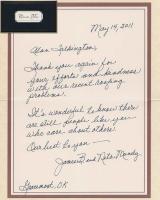 May 14, 2011
Alan
Thank you again for
your efforts and kindness
with our recent roofing
problems.
It's wonderful to know there
are still people like you
who care about others.
Our best to you —
James and
OK